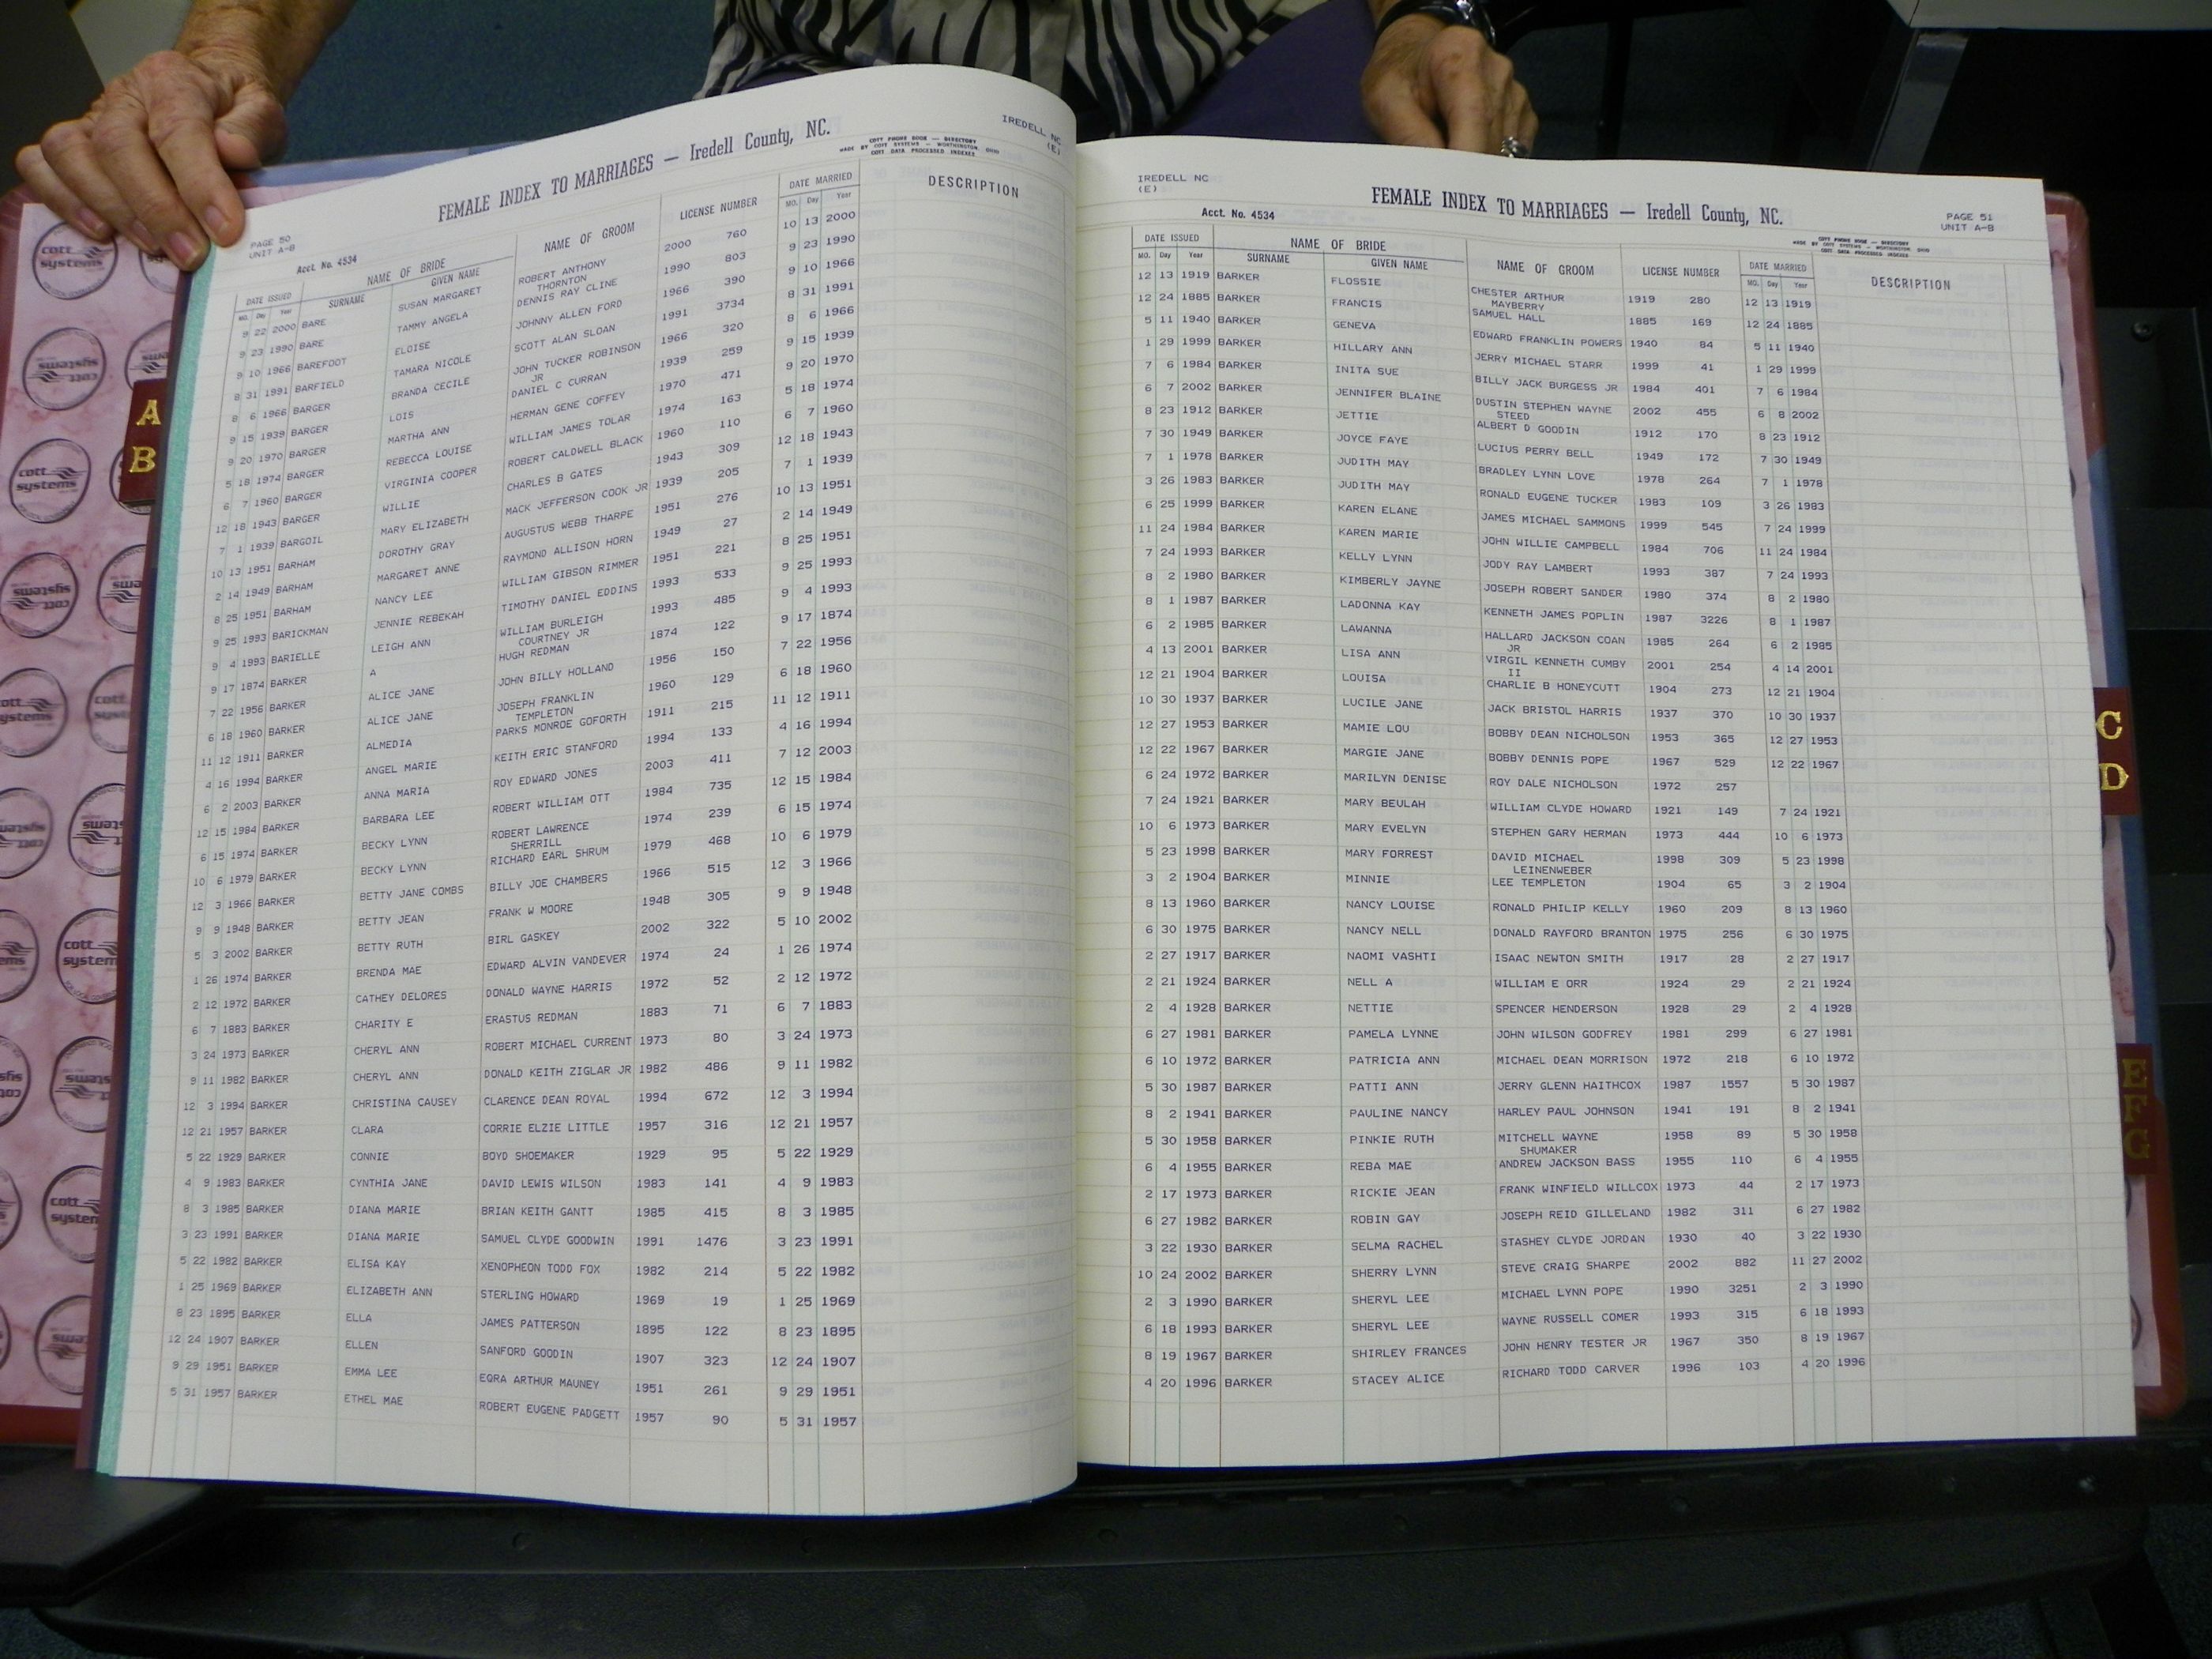 FEMALE INDEX TO MARRIAGES — Iredell County, NC.
IREDELL NC
(E)
COTT PHONE BOOK — DIRECTORY
MADE BY COTT SYSTEMS — WORTHINGTON, OHIO
COTT DATA PROCESSED INDEXES
PAGE 50
UNIT A-B
Acct. No. 4534
DATE ISSUED NAME OF BRIDE NAME OF GROOM LICENSE NUMBER DATE MARRIED DESCRIPTION
MO. Day Year SURNAME GIVEN NAME MO. Day Year
9 22 2000 BARE SUSAN MARGARET ROBERT ANTHONY 2000 760 10 13 2000
THORNTON
9 23 1990 BARE TAMMY ANGELA DENNIS RAY CLINE 1990 803 9 23 1990
9 10 1966 BAREFOOT ELOISE JOHNNY ALLEN FORD 1966 390 9 10 1966
8 31 1991 BARFIELD TAMARA NICOLE SCOTT ALAN SLOAN 1991 3734 8 31 1991
8 6 1966 BARGER BRANDA CECILE JOHN TUCKER ROBINSON 1966 320 8 6 1966
JR
9 15 1939 BARGER LOIS DANIEL C CURRAN 1939 259 9 15 1939
9 20 1970 BARGER MARTHA ANN HERMAN GENE COFFEY 1970 471 9 20 1970
5 18 1974 BARGER REBECCA LOUISE WILLIAM JAMES TOLAR 1974 163 5 18 1974
6 7 1960 BARGER VIRGINIA COOPER ROBERT CALDWELL BLACK 1960 110 6 7 1960
12 18 1943 BARGER WILLIE CHARLES B GATES 1943 309 12 18 1943
7 1 1939 BARGOIL MARY ELIZABETH MACK JEFFERSON COOK JR 1939 205 7 1 1939
10 13 1951 BARHAM DOROTHY GRAY AUGUSTUS WEBB THARPE 1951 276 10 13 1951
2 14 1949 BARHAM MARGARET ANNE RAYMOND ALLISON HORN 1949 27 2 14 1949
8 25 1951 BARHAM NANCY LEE WILLIAM GIBSON RIMMER 1951 221 8 25 1951
9 25 1993 BARICKMAN JENNIE REBEKAH TIMOTHY DANIEL EDDINS 1993 533 9 25 1993
9 4 1993 BARIELLE LEIGH ANN WILLIAM BURLEIGH 1993 485 9 4 1993
COURTNEY JR
9 17 1874 BARKER A HUGH REDMAN 1874 122 9 17 1874
7 22 1956 BARKER ALICE JANE JOHN BILLY HOLLAND 1956 150 7 22 1956
6 18 1960 BARKER ALICE JANE JOSEPH FRANKLIN 1960 129 6 18 1960
TEMPLETON
11 12 1911 BARKER ALMEDIA PARKS MONROE GOFORTH 1911 215 11 12 1911
4 16 1994 BARKER ANGEL MARIE KEITH ERIC STANFORD 1994 133 4 16 1994
6 2 2003 BARKER ANNA MARIA ROY EDWARD JONES 2003 411 7 12 2003
12 15 1984 BARKER BARBARA LEE ROBERT WILLIAM OTT 1984 735 12 15 1984
6 15 1974 BARKER BECKY LYNN ROBERT LAWRENCE 1974 239 6 15 1974
SHERRILL
10 6 1979 BARKER BECKY LYNN RICHARD EARL SHRUM 1979 468 10 6 1979
12 3 1966 BARKER BETTY JANE COMBS BILLY JOE CHAMBERS 1966 515 12 3 1966
9 9 1948 BARKER BETTY JEAN FRANK W MOORE 1948 305 9 9 1948
5 3 2002 BARKER BETTY RUTH BIRL GASKEY 2002 322 5 10 2002
1 26 1974 BARKER BRENDA MAE EDWARD ALVIN VANDEVER 1974 24 1 26 1974
2 12 1972 BARKER CATHEY DELORES DONALD WAYNE HARRIS 1972 52 2 12 1972
6 7 1883 BARKER CHARITY E ERASTUS REDMAN 1883 71 6 7 1883
3 24 1973 BARKER CHERYL ANN ROBERT MICHAEL CURRENT 1973 80 3 24 1973
9 11 1982 BARKER CHERYL ANN DONALD KEITH ZIGLAR JR 1982 486 9 11 1982
12 3 1994 BARKER CHRISTINA CAUSEY CLARENCE DEAN ROYAL 1994 672 12 3 1994
12 21 1957 BARKER CLARA CORRIE ELZIE LITTLE 1957 316 12 21 1957
5 22 1929 BARKER CONNIE BOYD SHOEMAKER 1929 95 5 22 1929
4 9 1983 BARKER CYNTHIA JANE DAVID LEWIS WILSON 1983 141 4 9 1983
8 3 1985 BARKER DIANA MARIE BRIAN KEITH GANTT 1985 415 8 3 1985
3 23 1991 BARKER DIANA MARIE SAMUEL CLYDE GOODWIN 1991 1476 3 23 1991
5 22 1982 BARKER ELISA KAY XENOPHEON TODD FOX 1982 214 5 22 1982
1 25 1969 BARKER ELIZABETH ANN STERLING HOWARD 1969 19 1 25 1969
8 23 1895 BARKER ELLA JAMES PATTERSON 1895 122 8 23 1895
12 24 1907 BARKER ELLEN SANFORD GOODIN 1907 323 12 24 1907
9 29 1951 BARKER EMMA LEE EQRA ARTHUR MAUNEY 1951 261 9 29 1951
5 31 1957 BARKER ETHEL MAE ROBERT EUGENE PADGETT 1957 90 5 31 1957
IREDELL NC
(E)
FEMALE INDEX TO MARRIAGES — Iredell County, NC.
Acct. No. 4534
PAGE 51
UNIT A-B
COTT PHONE BOOK — DIRECTORY
MADE BY COTT SYSTEMS — WORTHINGTON, OHIO
COTT DATA PROCESSED INDEXES
DATE ISSUED NAME OF BRIDE NAME OF GROOM LICENSE NUMBER DATE MARRIED DESCRIPTION
MO. Day Year SURNAME GIVEN NAME MO. Day Year
12 13 1919 BARKER FLOSSIE CHESTER ARTHUR 1919 280 12 13 1919
MAYBERRY
12 24 1885 BARKER FRANCIS SAMUEL HALL 1885 169 12 24 1885
5 11 1940 BARKER GENEVA EDWARD FRANKLIN POWERS 1940 84 5 11 1940
1 29 1999 BARKER HILLARY ANN JERRY MICHAEL STARR 1999 41 1 29 1999
7 6 1984 BARKER INITA SUE BILLY JACK BURGESS JR 1984 401 7 6 1984
6 7 2002 BARKER JENNIFER BLAINE DUSTIN STEPHEN WAYNE 2002 455 6 8 2002
STEED
8 23 1912 BARKER JETTIE ALBERT D GOODIN 1912 170 8 23 1912
7 30 1949 BARKER JOYCE FAYE LUCIUS PERRY BELL 1949 172 7 30 1949
7 1 1978 BARKER JUDITH MAY BRADLEY LYNN LOVE 1978 264 7 1 1978
3 26 1983 BARKER JUDITH MAY RONALD EUGENE TUCKER 1983 109 3 26 1983
6 25 1999 BARKER KAREN ELANE JAMES MICHAEL SAMMONS 1999 545 7 24 1999
11 24 1984 BARKER KAREN MARIE JOHN WILLIE CAMPBELL 1984 706 11 24 1984
7 24 1993 BARKER KELLY LYNN JODY RAY LAMBERT 1993 387 7 24 1993
8 2 1980 BARKER KIMBERLY JAYNE JOSEPH ROBERT SANDER 1980 374 8 2 1980
8 1 1987 BARKER LADONNA KAY KENNETH JAMES POPLIN 1987 3226 8 1 1987
6 2 1985 BARKER LAWANNA HALLARD JACKSON COAN 1985 264 6 2 1985
JR
4 13 2001 BARKER LISA ANN VIRGIL KENNETH CUMBY 2001 254 4 14 2001
II
12 21 1904 BARKER LOUISA CHARLIE B HONEYCUTT 1904 273 12 21 1904
10 30 1937 BARKER LUCILE JANE JACK BRISTOL HARRIS 1937 370 10 30 1937
12 27 1953 BARKER MAMIE LOU BOBBY DEAN NICHOLSON 1953 365 12 27 1953
12 22 1967 BARKER MARGIE JANE BOBBY DENNIS POPE 1967 529 12 22 1967
6 24 1972 BARKER MARILYN DENISE ROY DALE NICHOLSON 1972 257
7 24 1921 BARKER MARY BEULAH WILLIAM CLYDE HOWARD 1921 149 7 24 1921
10 6 1973 BARKER MARY EVELYN STEPHEN GARY HERMAN 1973 444 10 6 1973
5 23 1998 BARKER MARY FORREST DAVID MICHAEL 1998 309 5 23 1998
LEINENWEBER
3 2 1904 BARKER MINNIE LEE TEMPLETON 1904 65 3 2 1904
8 13 1960 BARKER NANCY LOUISE RONALD PHILIP KELLY 1960 209 8 13 1960
6 30 1975 BARKER NANCY NELL DONALD RAYFORD BRANTON 1975 256 6 30 1975
2 27 1917 BARKER NAOMI VASHTI ISAAC NEWTON SMITH 1917 28 2 27 1917
2 21 1924 BARKER NELL A WILLIAM E ORR 1924 29 2 21 1924
2 4 1928 BARKER NETTIE SPENCER HENDERSON 1928 29 2 4 1928
6 27 1981 BARKER PAMELA LYNNE JOHN WILSON GODFREY 1981 299 6 27 1981
6 10 1972 BARKER PATRICIA ANN MICHAEL DEAN MORRISON 1972 218 6 10 1972
5 30 1987 BARKER PATTI ANN JERRY GLENN HAITHCOX 1987 1557 5 30 1987
8 2 1941 BARKER PAULINE NANCY HARLEY PAUL JOHNSON 1941 191 8 2 1941
5 30 1958 BARKER PINKIE RUTH MITCHELL WAYNE 1958 89 5 30 1958
SHUMAKER
6 4 1955 BARKER REBA MAE ANDREW JACKSON BASS 1955 110 6 4 1955
2 17 1973 BARKER RICKIE JEAN FRANK WINFIELD WILLCOX 1973 44 2 17 1973
6 27 1982 BARKER ROBIN GAY JOSEPH REID GILLELAND 1982 311 6 27 1982
3 22 1930 BARKER SELMA RACHEL STASHEY CLYDE JORDAN 1930 40 3 22 1930
10 24 2002 BARKER SHERRY LYNN STEVE CRAIG SHARPE 2002 882 11 27 2002
2 3 1990 BARKER SHERYL LEE MICHAEL LYNN POPE 1990 3251 2 3 1990
6 18 1993 BARKER SHERYL LEE WAYNE RUSSELL COMER 1993 315 6 18 1993
8 19 1967 BARKER SHIRLEY FRANCES JOHN HENRY TESTER JR 1967 350 8 19 1967
4 20 1996 BARKER STACEY ALICE RICHARD TODD CARVER 1996 103 4 20 1996
A
B
C
D
E
F
G
cott
systems